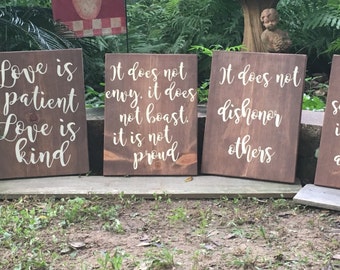 Love is
patient
Love is
kind
It does not
envy, it does
not boast,
it is not
proud
It does not
dishonor
others